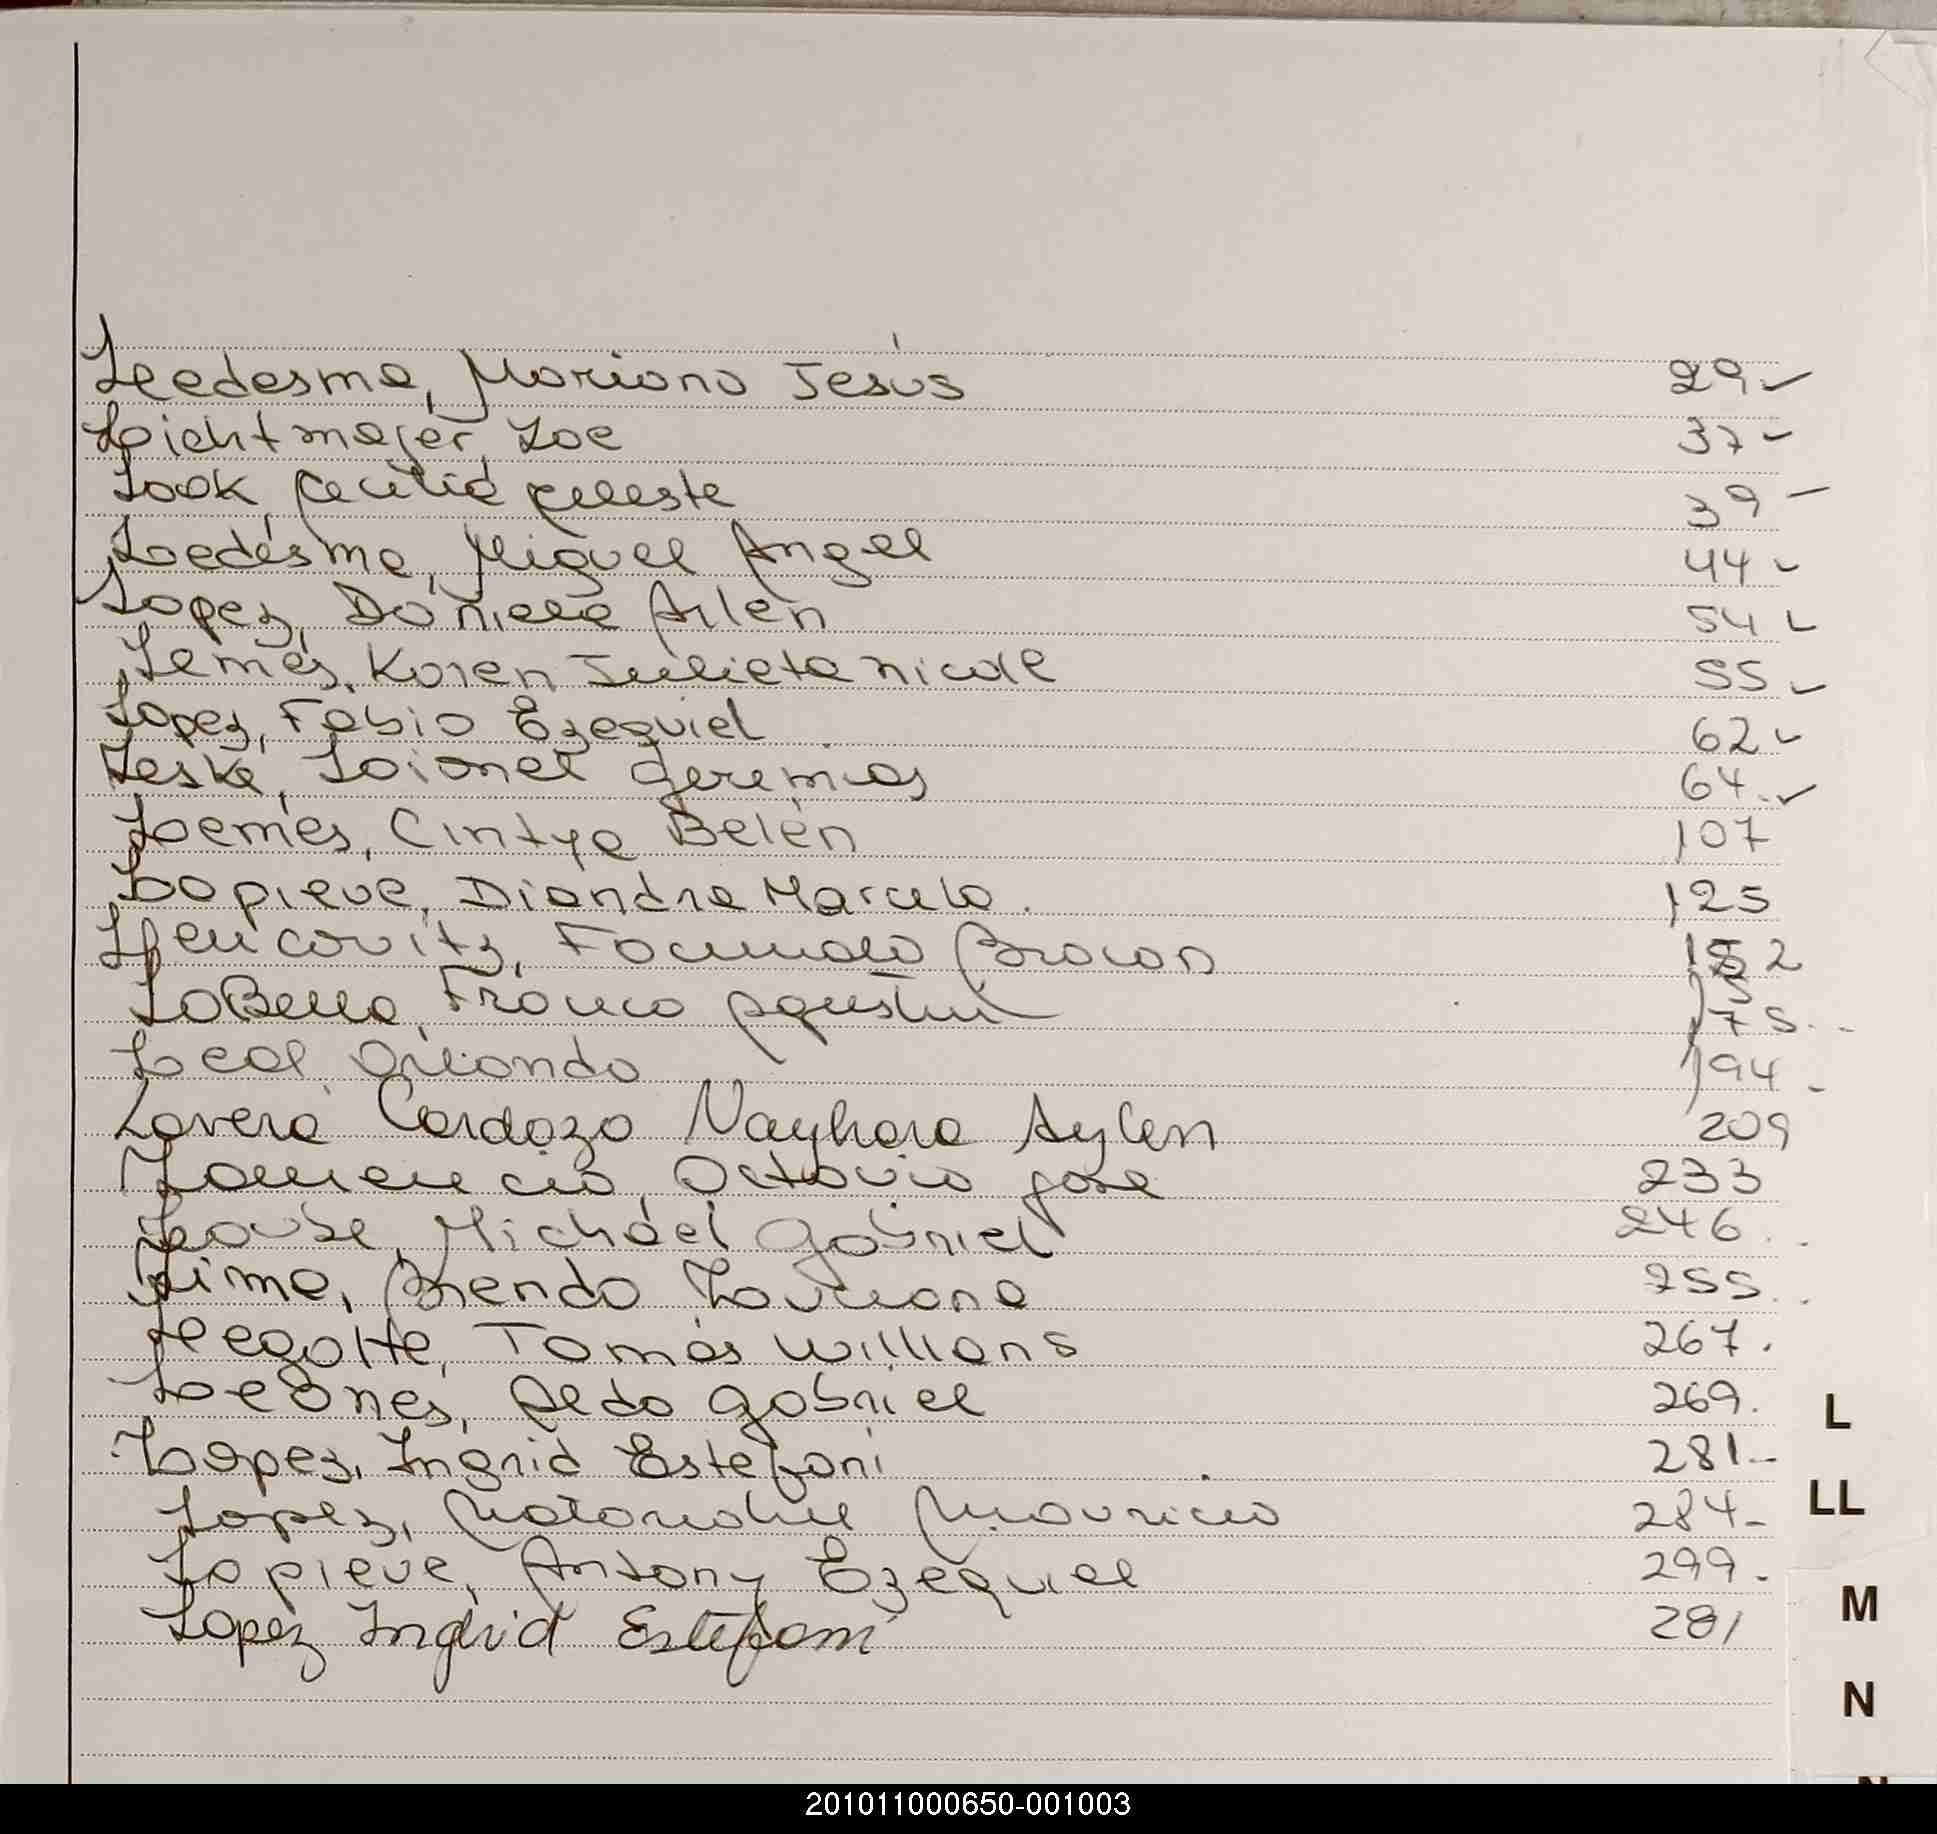 Ledesma, Mariano Jesús 29 ✓
Lichtmajer, Zoe 37 -
Look, Cecilia Celeste 39 -
Ledesma, Miguel Angel 44 -
Lopez, Daniela Arlen 54
Lemes, Karen Julieta Nicole 55 -
Lopez, Fabio Ezequiel 62 -
Leske, Loionel Geremias 64. ✓
Lemes, Cintya Belén 107
Lapieve, Diandra Marcela. 125
Facundo Braian 152
LoBello, Franco Agustin 175..
Leal, Orlando 194 -
Lovera Cardozo Nayhara Aylen 209
Octavio José 233
Michael Gabriel 246..
Lima, Brenda Luciana 255..
Tomás Willians 267.
Leones, Aldo Gabriel 269.
Lopez, Ingrid Estefani 281-
Lopez, Mauricio 284-
Lapieve, Antony Ezequiel 299.
Lopez Ingrid Estefani 281
L
LL
M
N
201011000650-001003